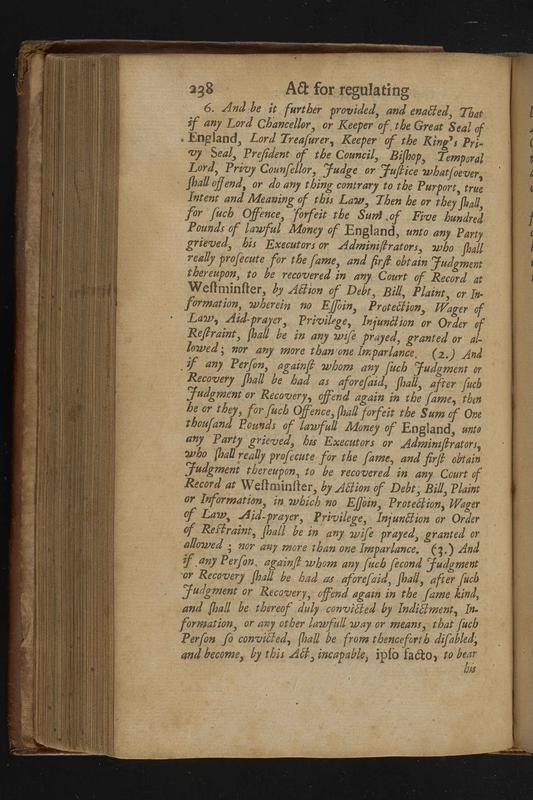 238 Act for regulating
6. And be it further provided, and enacted, That
if any Lord Chancellor, or Keeper of the Great Seal of
England, Lord Treaſurer, Keeper of the King's Pri-
vy Seal, Preſident of the Council, Biſhop, Temporal
Lord, Privy Counſellor, Judge or Juſtice whatſoever,
ſhall offend, or do any thing contrary to the Purport, true
Intent and Meaning of this Law, Then he or they ſhall,
for ſuch Offence, forfeit the Sum of Five hundred
Pounds of lawful Money of England, unto any Party
grieved, his Executors or Adminiſtrators, who ſhall
really proſecute for the ſame, and firſt obtain Judgment
thereupon, to be recovered in any Court of Record at
Weſtminſter, by Action of Debt, Bill, Plaint, or In-
formation, wherein no Eſſoin, Protection, Wager of
Law, Aid-prayer, Privilege, Injunction or Order of
Reſtraint, ſhall be in any wiſe prayed, granted or al-
lowed; nor any more than one Imparlance. (2.) And
if any Perſon, againſt whom any ſuch Judgment or
Recovery ſhall be had as aforeſaid, ſhall, after ſuch
Judgment or Recovery, offend again in the ſame, then
he or they, for ſuch Offence, ſhall forfeit the Sum of One
thouſand Pounds of lawfull Money of England, unto
any Party grieved, his Executors or Adminiſtrators,
who ſhall really proſecute for the ſame, and firſt obtain
Judgment thereupon, to be recovered in any Court of
Record at Weſtminſter, by Action of Debt, Bill, Plaint
or Information, in which no Eſſoin, Protection, Wager
of Law, Aid-prayer, Privilege, Injunction or Order
of Reſtraint, ſhall be in any wiſe prayed, granted or
allowed; nor any more than one Imparlance. (3.) And
if any Perſon, againſt whom any ſuch ſecond Judgment
or Recovery ſhall be had as aforeſaid, ſhall, after ſuch
Judgment or Recovery, offend again in the ſame kind,
and ſhall be thereof duly convicted by Indictment, In-
formation, or any other lawfull way or means, that ſuch
Perſon ſo convicted, ſhall be from thenceforth diſabled,
and become, by this Act, incapable, ipſo facto, to bear
his